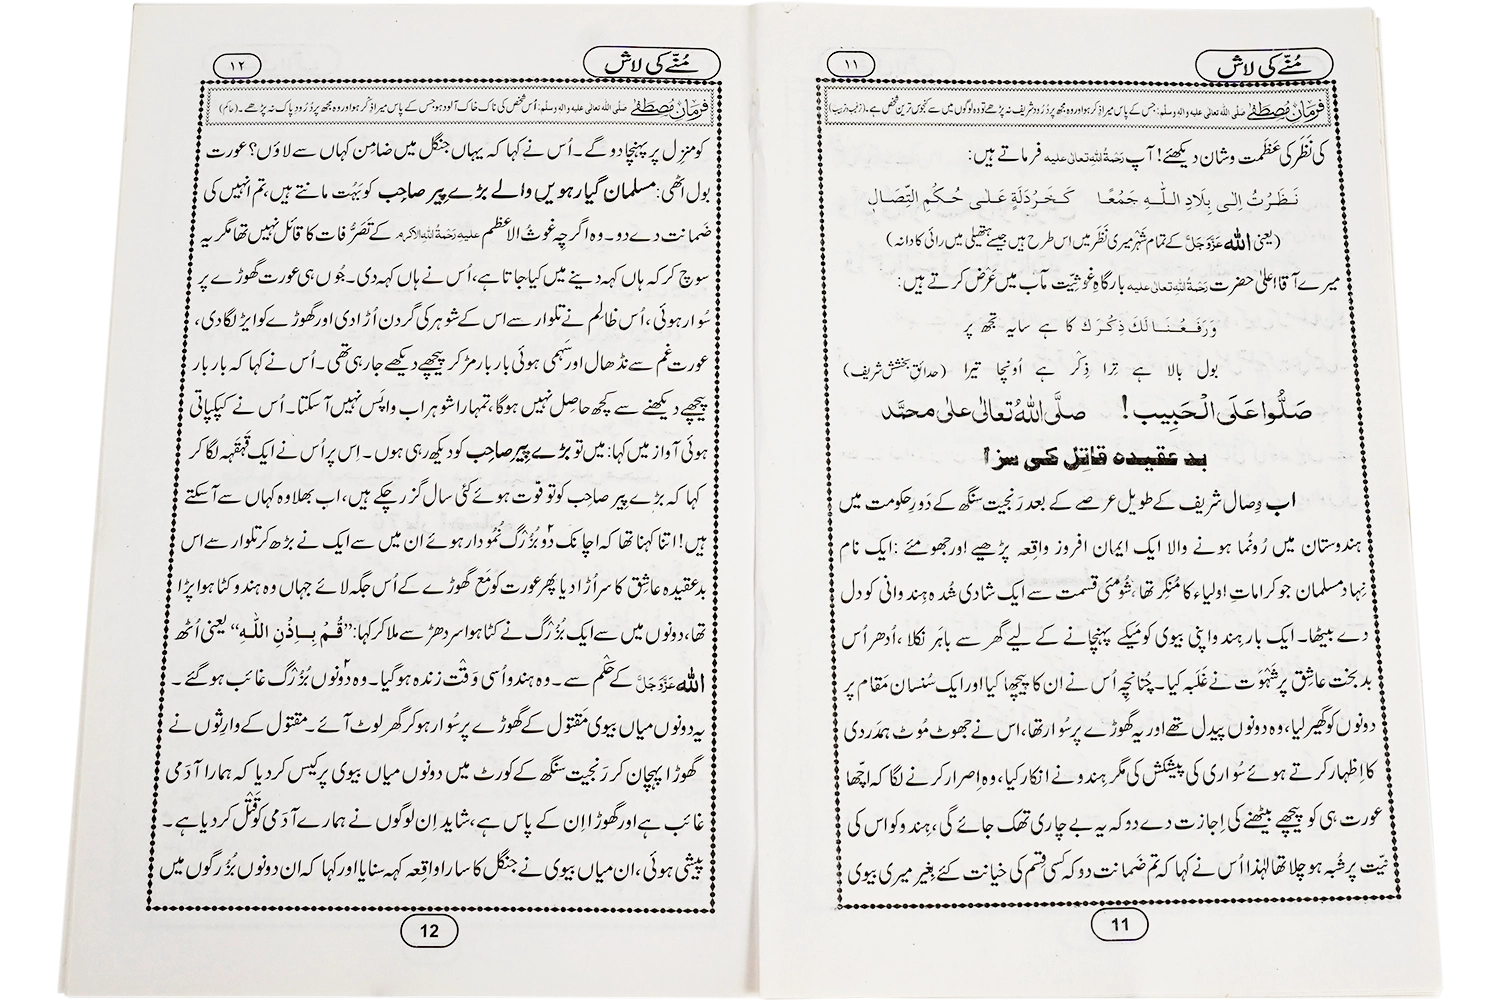 مُنّے کی لاش
۱۱
فرمانِ مصطفےٰ صلی اللہ تعالیٰ علیہ والہ وسلم: جس کے پاس میرا ذِکر ہوا اور وہ مجھ پر دُرُود شریف نہ پڑھے تو وہ لوگوں میں سے کنجوس ترین شخص ہے۔ (ترغیب ترہیب)
کی نَظَر کی عَظَمت و شان دیکھئے! آپ رَحْمَۃُ اللہِ تعالٰی علیہ فرماتے ہیں:
نَظَرْتُ اِلٰی بِلَادِ اللہِ جَمْعًا کَخَرْدَلَۃٍ عَلٰی حُکْمِ التِّصَالِ
(یعنی اللہ عَزَّوَجَلَّ کے تمام شہر میری نَظَر میں اس طرح ہیں جیسے ہتھیلی میں رائی کا دانہ)
میرے آقا اعلیٰ حضرت رَحْمَۃُ اللہِ تعالٰی علیہ بارگاہِ غوثِیَّت مآب میں عَرْض کرتے ہیں:
وَرَفَعْنَا لَكَ ذِكْرَكَ کا ہے سایہ تجھ پر
بول بالا ہے تِرا ذِکْر ہے اُونچا تیرا (حدائقِ بخشش شریف)
صَلُّوا عَلَی الْحَبِیب! صلَّی اللہُ تعالیٰ علیٰ محمَّد
بد عقیدہ قاتِل کی سزا
اب وِصال شریف کے طویل عرصے کے بعد رَنجیت سنگھ کے دَورِ حکومت میں
ہندوستان میں رُونُما ہونے والا ایک ایمان افروز واقعہ پڑھیے اور جھومئے: ایک نام
نِہاد مسلمان جو کراماتِ اولیاء کا مُنکِر تھا، شُومئی قسمت سے ایک شادی شُدہ ہندوانی کو دل
دے بیٹھا۔ ایک بار ہندو اپنی بیوی کو میکے پہنچانے کے لیے گھر سے باہَر نکلا، اُدھر اُس
بد بخت عاشق پر شَہْوَت نے غَلَبہ کیا۔ چُنانچِہ اُس نے ان کا پیچھا کیا اور ایک سُنسان مَقام پر
دونوں کو گھیر لیا، وہ دونوں پیدل تھے اور یہ گھوڑے پر سُوار تھا، اس نے جھوٹ مُوٹ ہمدردی
کا اِظہار کرتے ہوئے سُواری کی پیشکش کی مگر ہِندو نے انکار کیا، وہ اِصرار کرنے لگا کہ اچّھا
عورت ہی کو پیچھے بیٹھنے کی اِجازت دے دو کہ یہ بے چاری تھک جائے گی، ہندو کو اس کی
نیّت پر شُبہ ہو چلا تھا لہٰذا اُس نے کہا کہ تم ضَمانت دو کہ کسی قسم کی خیانت کئے بِغیر میری بیوی
11
مُنّے کی لاش
۱۲
فرمانِ مصطفےٰ صلی اللہ تعالیٰ علیہ والہ وسلم: اُس شخص کی ناک خاک آلود ہو جس کے پاس میرا ذِکر ہوا اور وہ مجھ پر دُرُودِ پاک نہ پڑھے۔ (حاکم)
کو منزل پر پہنچا دو گے۔ اُس نے کہا کہ یہاں جنگل میں ضامِن کہاں سے لاؤں؟ عورت
بول اٹھی: مسلمان گیارہویں والے بڑے پیر صاحِب کو بَہُت مانتے ہیں، تم اُنہیں کی
ضَمانت دے دو۔ وہ اگرچِہ غوثُ الاعظم علیہ رَحمَۃُ اللہِ الاکرم کے تَصَرُّفات کا قائل نہیں تھا مگر یہ
سوچ کر کہ ہاں کہہ دینے میں کیا جاتا ہے، اُس نے ہاں کہہ دی۔ جُوں ہی عورت گھوڑے پر
سُوار ہوئی، اُس ظالِم نے تلوار سے اس کے شوہر کی گردن اُڑا دی اور گھوڑے کو ایڑ لگا دی،
عورت غم سے نڈھال اور سَہمی ہوئی بار بار مڑ کر پیچھے دیکھے جا رہی تھی۔ اُس نے کہا کہ بار بار
پیچھے دیکھنے سے کچھ حاصل نہیں ہوگا، تمہارا شوہر اب واپَس نہیں آ سکتا۔ اُس نے کپکپاتی
ہوئی آواز میں کہا: میں تو بڑے پیر صاحِب کو دیکھ رہی ہوں۔ اِس پر اُس نے ایک قَہقَہہ لگا کر
کہا کہ بڑے پِیر صاحِب کو تو فوت ہوئے کئی سال گزر چکے ہیں، اب بھلا وہ کہاں سے آسکتے
ہیں! اتنا کہنا تھا کہ اچانک دو ۲ بُزُرگ نُمُودار ہوئے ان میں سے ایک نے بڑھ کر تلوار سے اس
بد عقیدہ عاشِق کا سر اُڑا دیا پھر عورت کو مَع گھوڑے کے اُس جگہ لائے جہاں وہ ہندو کٹا ہوا پڑا
تھا، دونوں میں سے ایک بُزُرگ نے کٹا ہوا سر دھڑ سے ملا کر کہا: ”قُمْ بِاِذْنِ اللہِ“ یعنی اُٹھ
اللہ عَزَّوَجَلَّ کے حُکم سے۔ وہ ہندو اُسی وَقْت زندہ ہو گیا۔ وہ دونوں ۲ بُزُرگ غائب ہو گئے۔
یہ دونوں میاں بیوی مَقتول کے گھوڑے پر سُوار ہو کر گھر لوٹ آئے۔ مقتول کے وارِثوں نے
گھوڑا پہچان کر رَنجیت سنگھ کے کورٹ میں دونوں میاں بیوی پر کیس کر دیا کہ ہمارا آدَمی
غائب ہے اور گھوڑا اِن کے پاس ہے، شاید اِن لوگوں نے ہمارے آدَمی کو قَتْل کر دیا ہے۔
پیشی ہوئی، ان میاں بیوی نے جنگل کا سارا واقِعہ کہہ سنایا اور کہا کہ ان دونوں بُزُرگوں میں
12